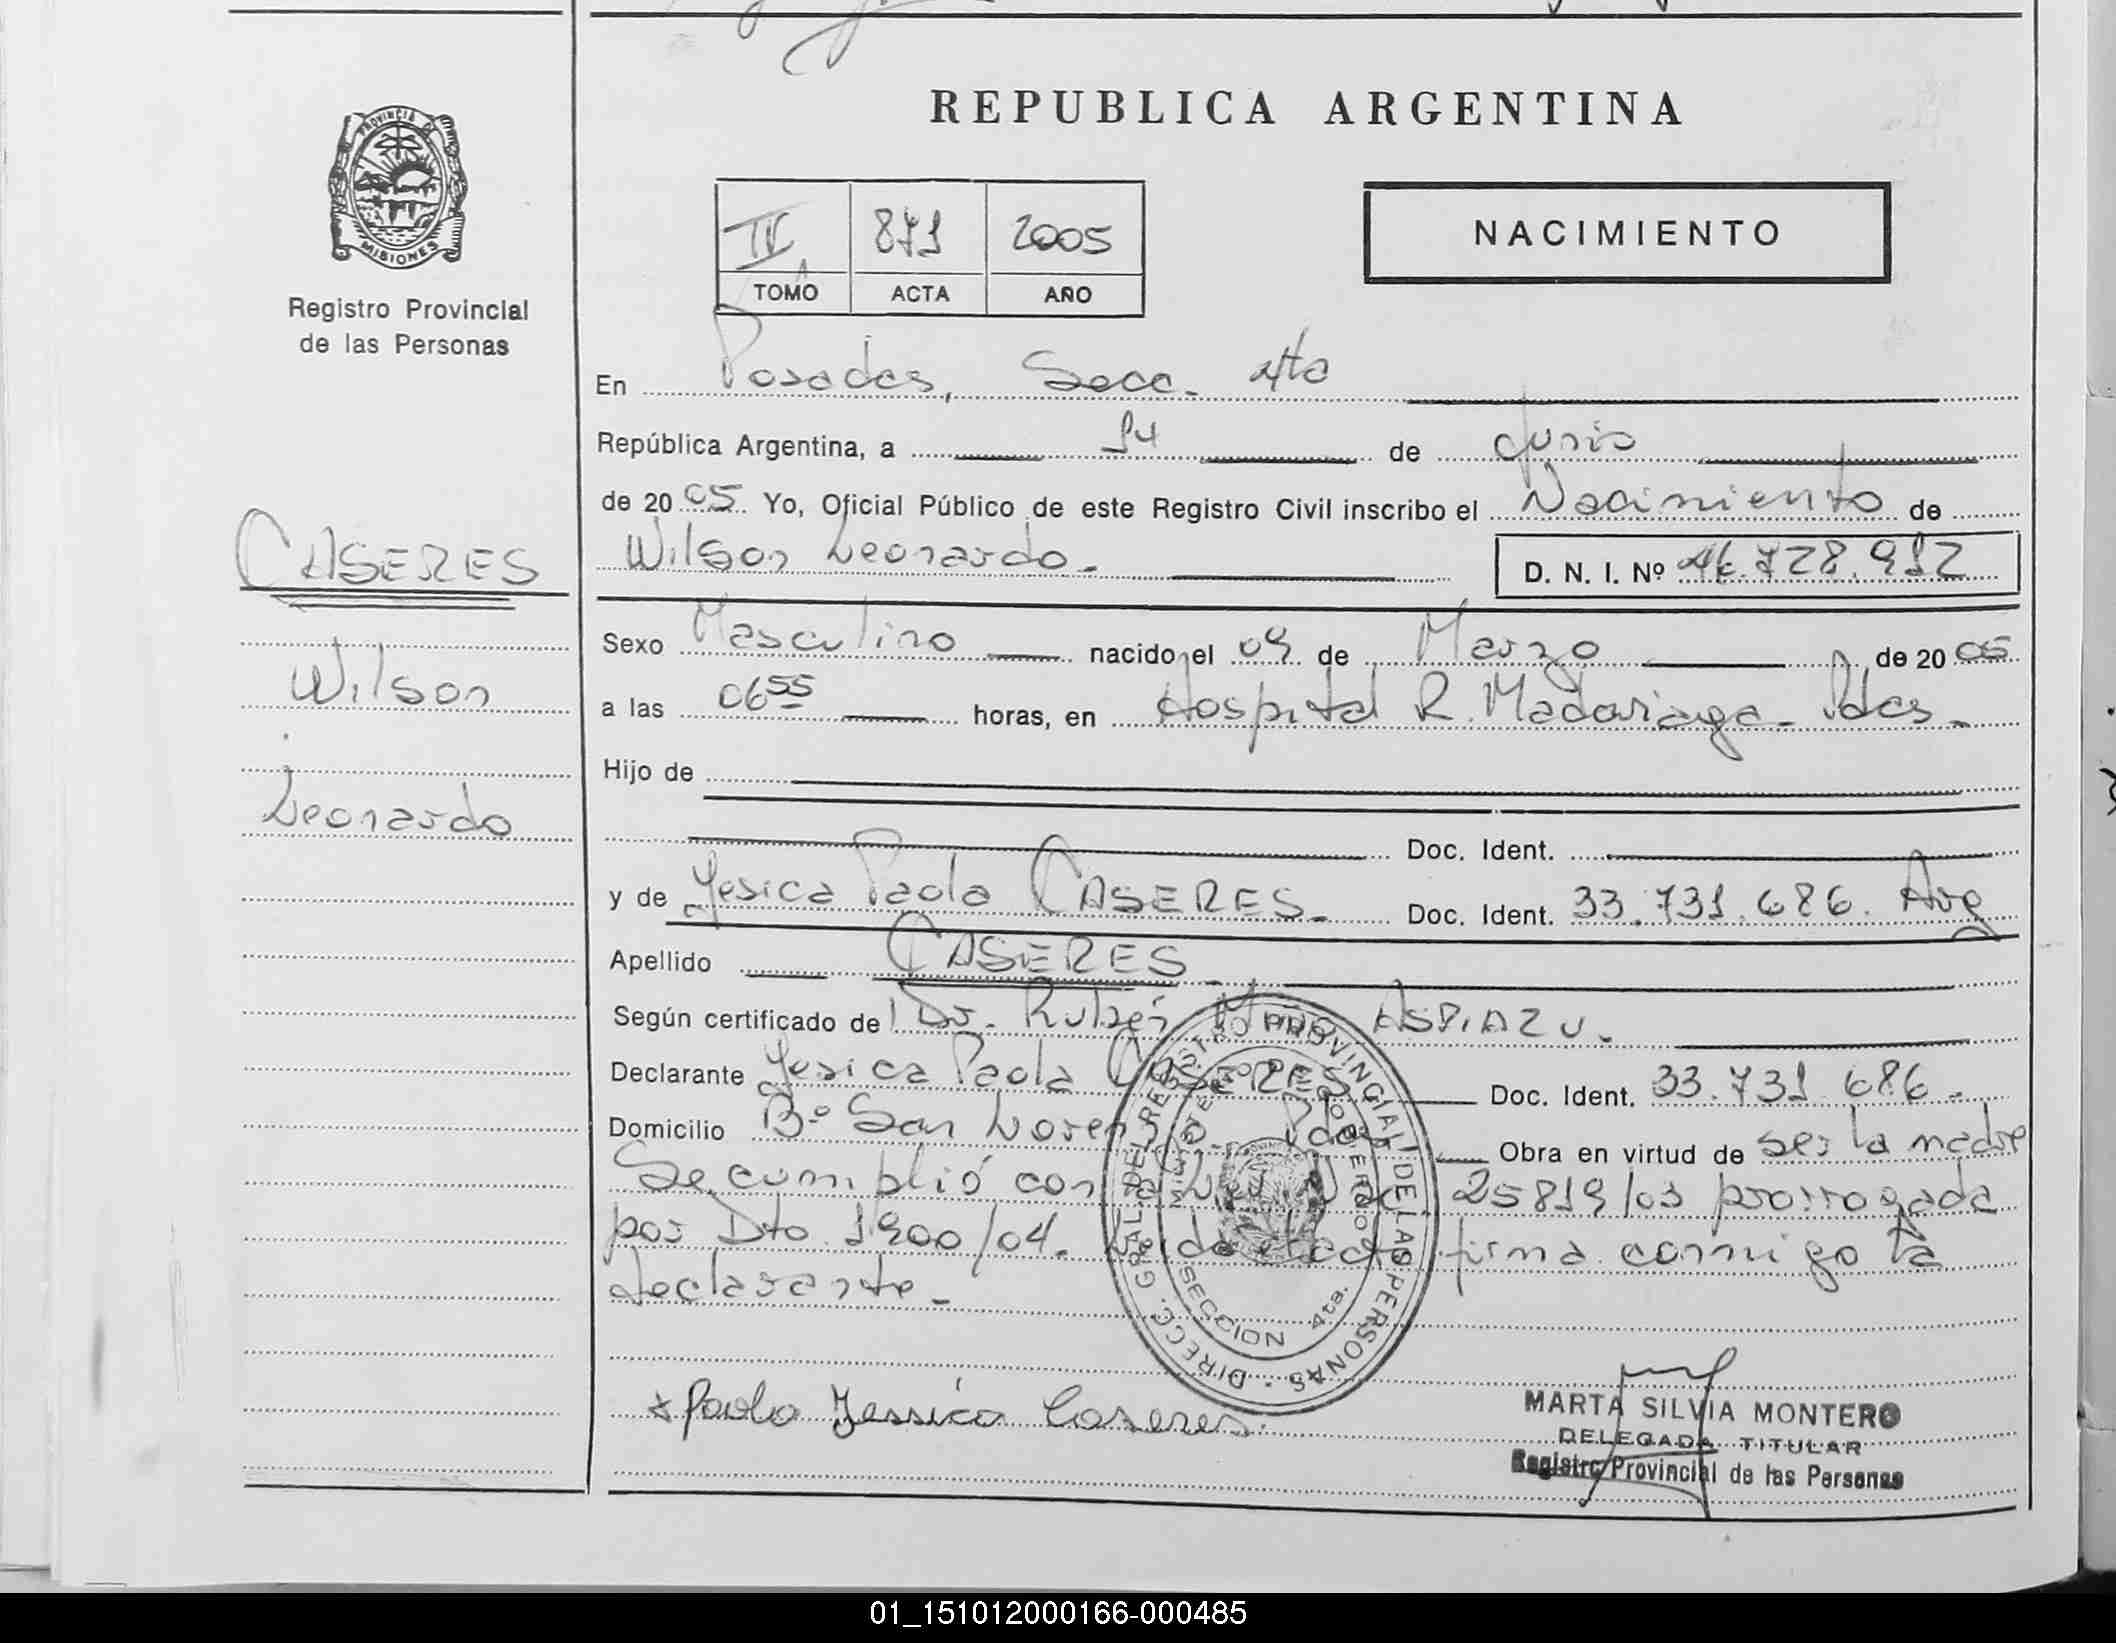 REPUBLICA ARGENTINA
PROVINCIA DE
MISIONES
Registro Provincial
de las Personas
NACIMIENTO
IV 871 2005
TOMO ACTA AÑO
En Posadas, Secc. 4ta
República Argentina, a 14 de Junio
de 2005 Yo, Oficial Público de este Registro Civil inscribo el Nacimiento de
CASERES
Wilson Leonardo. D. N. I. Nº 46.728.912
Sexo Masculino nacido el 09 de Marzo de 2005
Wilson
a las 06 55 horas, en Hospital R. Madariaga - Pdas.
Hijo de
Leonardo
Doc. Ident.
y de Yesica Paola CASERES. Doc. Ident. 33.731.686. Arg
Apellido CASERES
Según certificado de Dr. Rubén ASPIAZU.
Declarante Yesica Paola CASERES Doc. Ident. 33.731.686.
Domicilio Bº San Lorenzo. Pdas Obra en virtud de ser la madre
Se cumplió con Ley 25819/03 prorrogada
por Dto 1900/04. Leida el acta firma conmigo la
declarante.
DIRECC. GRAL. DEL REGISTRO PROVINCIAL DE LAS PERSONAS
MINISTERIO DE GOBIERNO
SECCION 4ta.
x Paola Jessica Caseres.
MARTA SILVIA MONTERO
DELEGADA TITULAR
Registro Provincial de las Personas
01_151012000166-000485